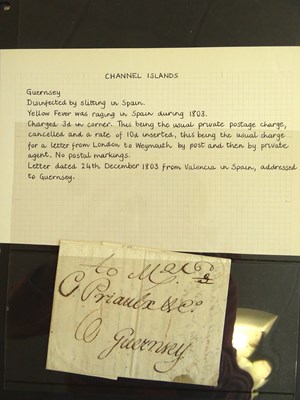 CHANNEL ISLANDS
Guernsey
Disinfected by slitting in Spain.
Yellow Fever was raging in Spain during 1803.
Charged 3d in corner. This being the usual private postage charge,
cancelled and a rate of 10d inserted, this being the usual charge
for a letter from London to Weymouth by post and then by private
agent. No postal markings.
Letter dated 24th December 1803 from Valencia in Spain, addressed
to Guernsey.
to
C. Priaulx & Co
Guernsey